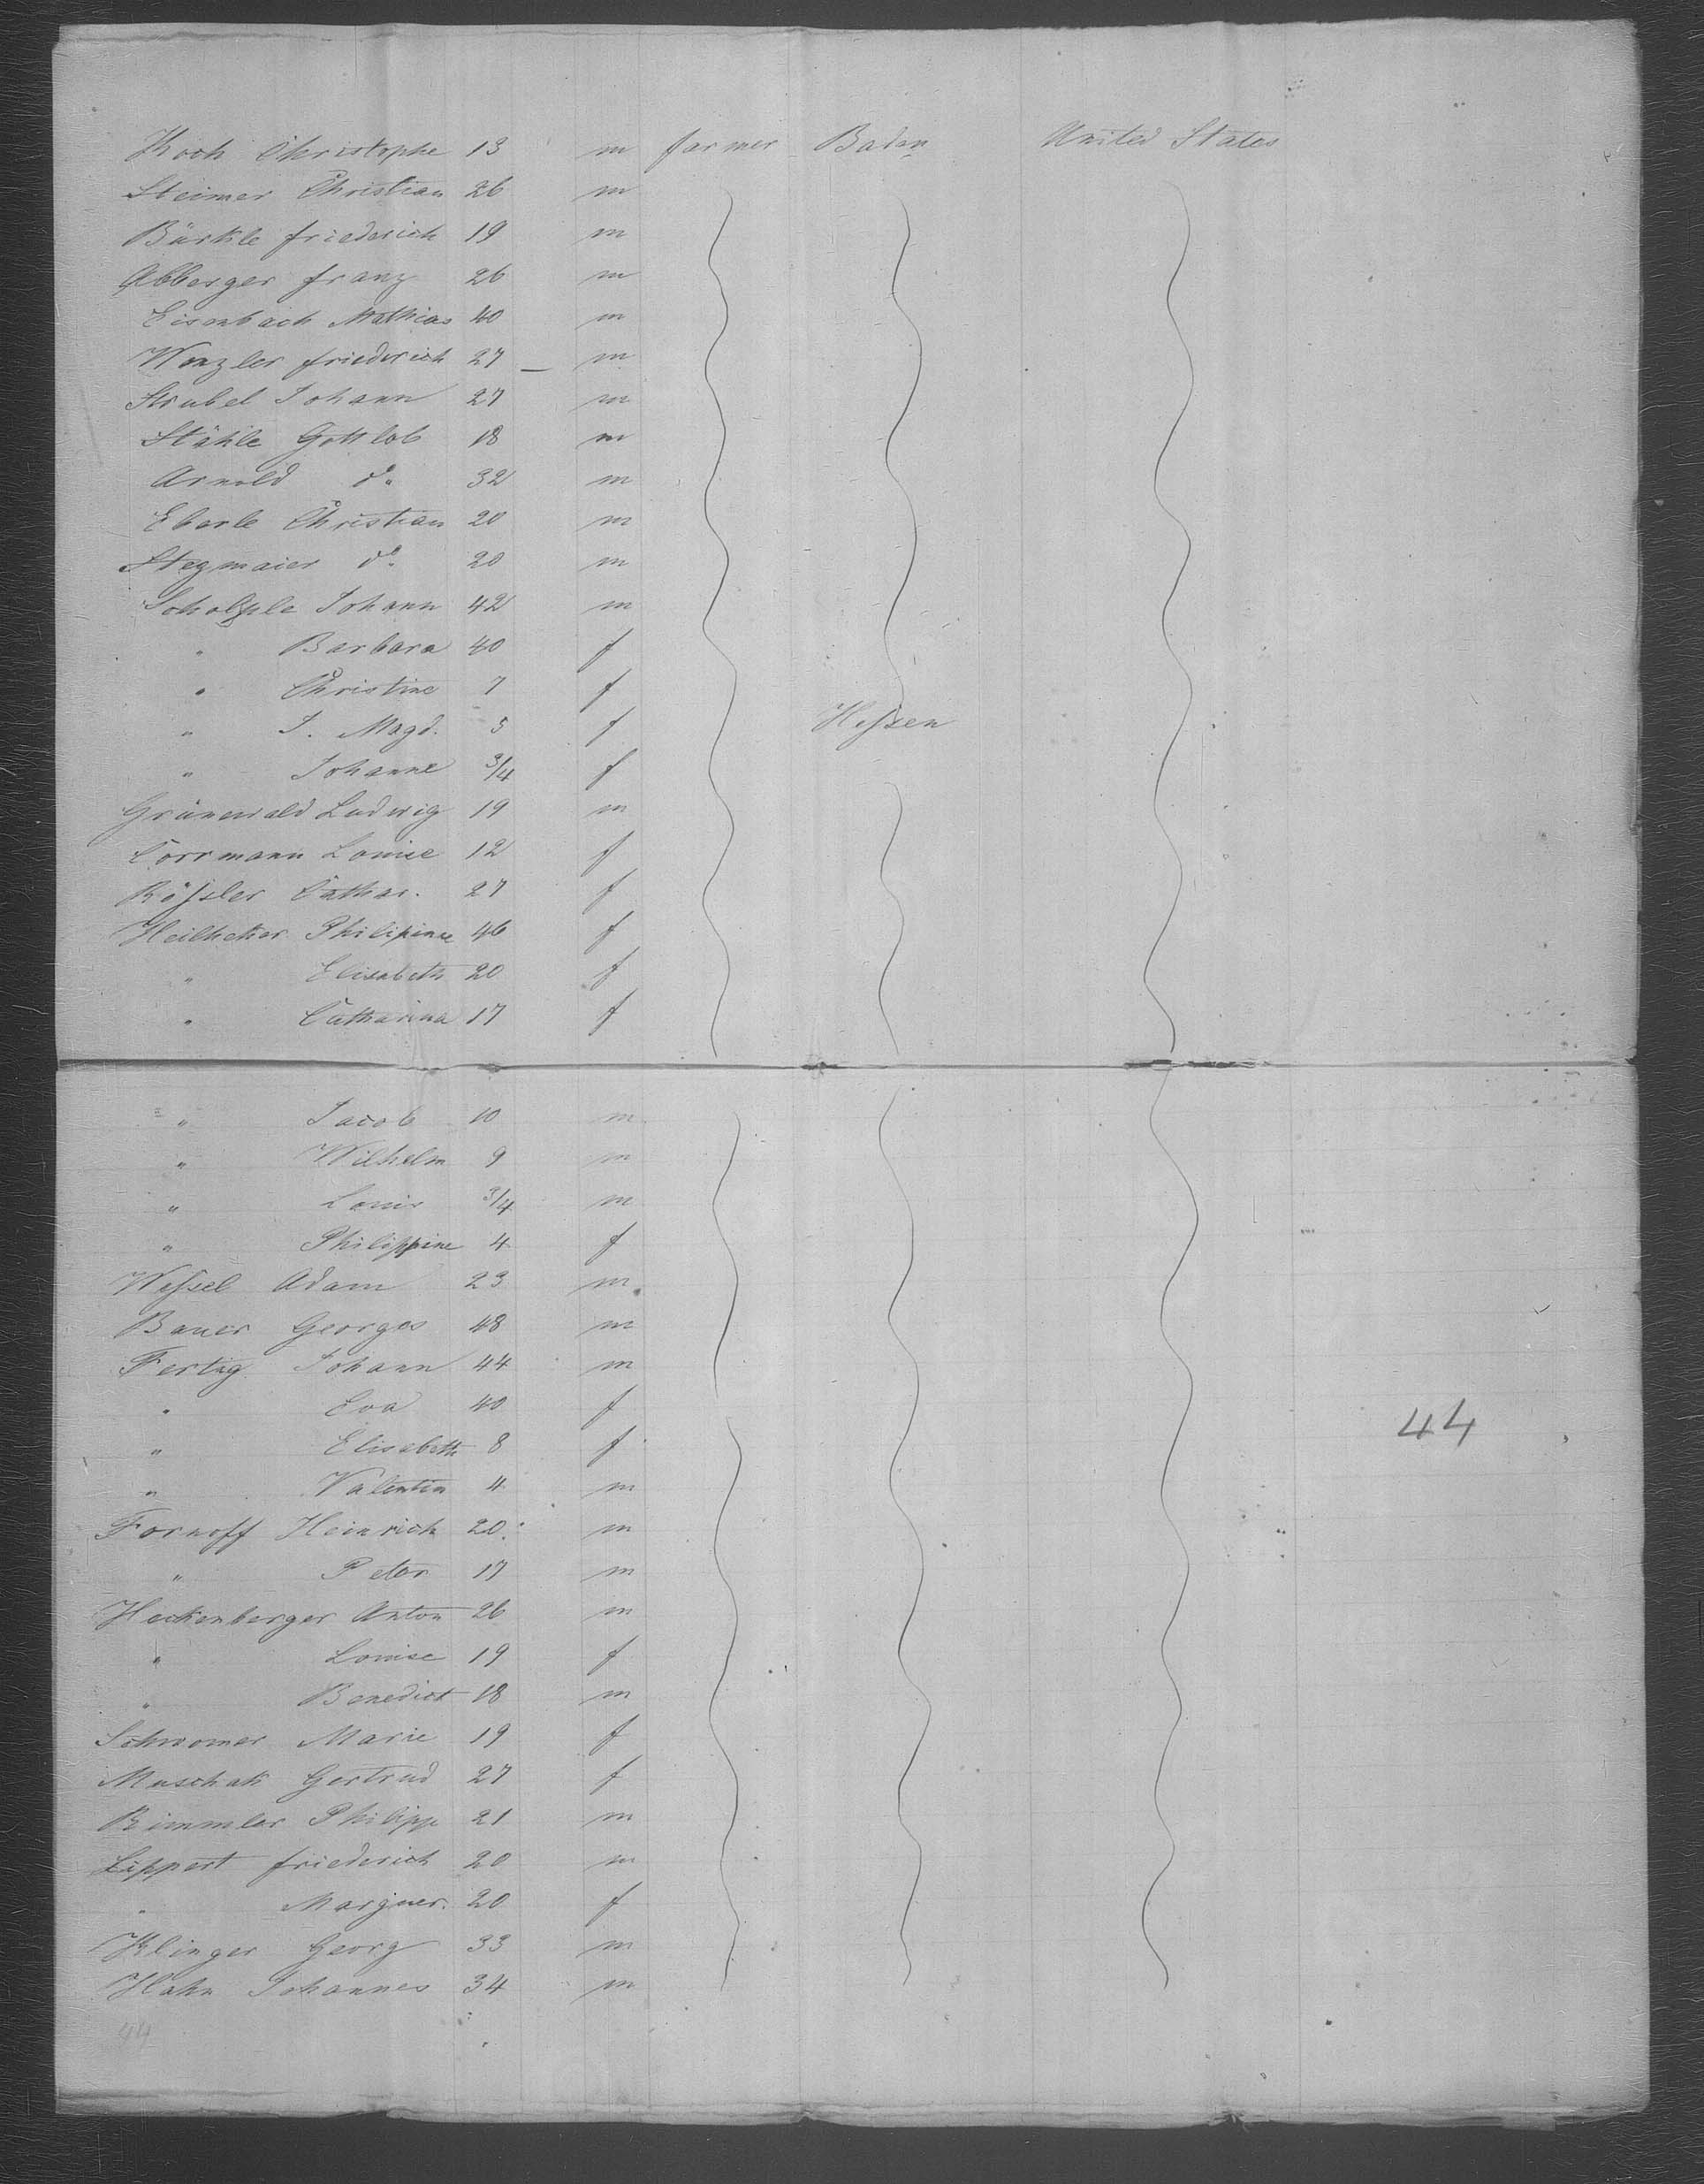 Koch Christophe 13 m farmer Baden United States
Steimer Christian 26 m
Bürkle friederich 19 m
Abberger franz 26 m
Eisenbach Mathias 40 m
Wenzler friederich 27 — m
Strubel Johann 27 m
Stähle Gottlob 18 m
Arnold do. 32 m
Eberle Christian 20 m
Stegmaier do. 20 m
Johann 42 m
" Barbara 40 f
" Christine 7 f
" J. Magd. 5 f Hessen
" Johanne 3/4 f
Grünewald Ludwig 19 m
Corrmann Louise 12 f
Rössler Cathar. 27 f
Heilheker Philipine 46 f
" Elisabeth 20 f
" Catharina 17 f
" Jacob 10 m
" Wilhelm 9 m
" Louis 3/4 m
" Philippine 4 f
Wessel Adam 23 m
Bauer Georges 48 m
Fertig Johann 44 m
" Eva 40 f
" Elisabeth 8 f
44
" Valentin 4 m
Fornoff Heinrich 20 m
" Peter 17 m
Heckenberger Anton 26 m
" Louise 19 f
" Benedict 18 m
Schromer Marie 19 f
Muschak Gertrud 27 f
Rimmler Philipp 21 m
Lippert friederich 20 m
" Marguer. 20 f
Klinger Georg 33 m
Hahn Johannes 34 m
44